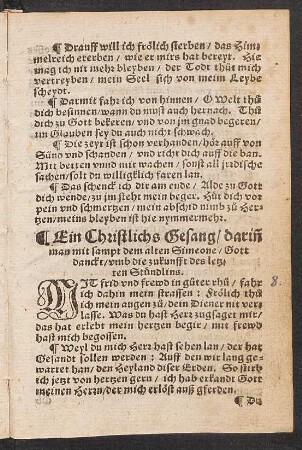 ¶ Drauff will ich frölich sterben / das Him⸗
melreich ererben / wie er mirs hat bereyt. Hie
mag ich nit mehr bleyben / der Todt thüt mich
vertreyben / mein Seel sich von meim Leybe
scheydt.
¶ Darmit fahr ich von hinnen / O Welt thü
dich besinnen / wann du must auch hernach. Thü
dich zu Gott bekeren / vnd von jm gnad begeren /
im Glauben sey du auch nicht schwach.
¶ Die zeyt ist schon verhanden / hör auff von
Sünd vnd schanden / vnd richt dich auff die ban.
Mit betten vnnd mit wachen / sonst all jrdische
sachen / solt du willigklich faren lan.
¶ Das schenck ich dir am ende / Alde zu Gott
dich wende / zu jm steht mein beger. Hüt dich vor
pein vnd schmertzen / mein abschid nimb zu Her⸗
tzen / meins bleyben ist hie nymmermehr.
¶ Ein Christlichs Gesang / dariñ
man mit sampt dem alten Simeone / Gott
danckt / vmb die zukunfft des letz⸗
ten Stündlins.
MIT frid vnd frewd in güter rhü / fahr
ich dahin mein strassen : frölich thü
ich mein augen zü / dein Diener nit ver⸗
lasse. Was du hast Herr zugsaget mir /
das hat erlebt mein hertzen begir / mit frewd
hast mich begossen.
8.
¶ Weyl du mich Herr hast sehen lan / der hat
Gesandt sollen werden : Auff den wir lang ge⸗
wartet han / den Heyland diser Erden. So stirb
ich jetzt von hertzen gern / ich hab erkandt Gott
meinen Herrn / der mich erlöst auß gferden.
¶ Du